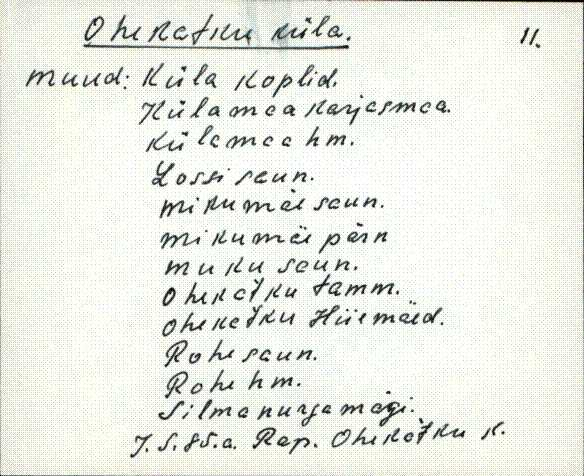 Ohekatku küla. 11.
Muud: Küla koplid.
Külamaa karjasmaa.
Külamaa hm.
Lossi saun.
Mikumäe saun.
Mikumäe pärn
Muku saun.
Ohekatku tamm.
Ohekatku Hiiemäed.
Rohe saun.
Rohe hm.
Silmanurga mägi.
J. S. 85.a. Rap. Ohekatku k.